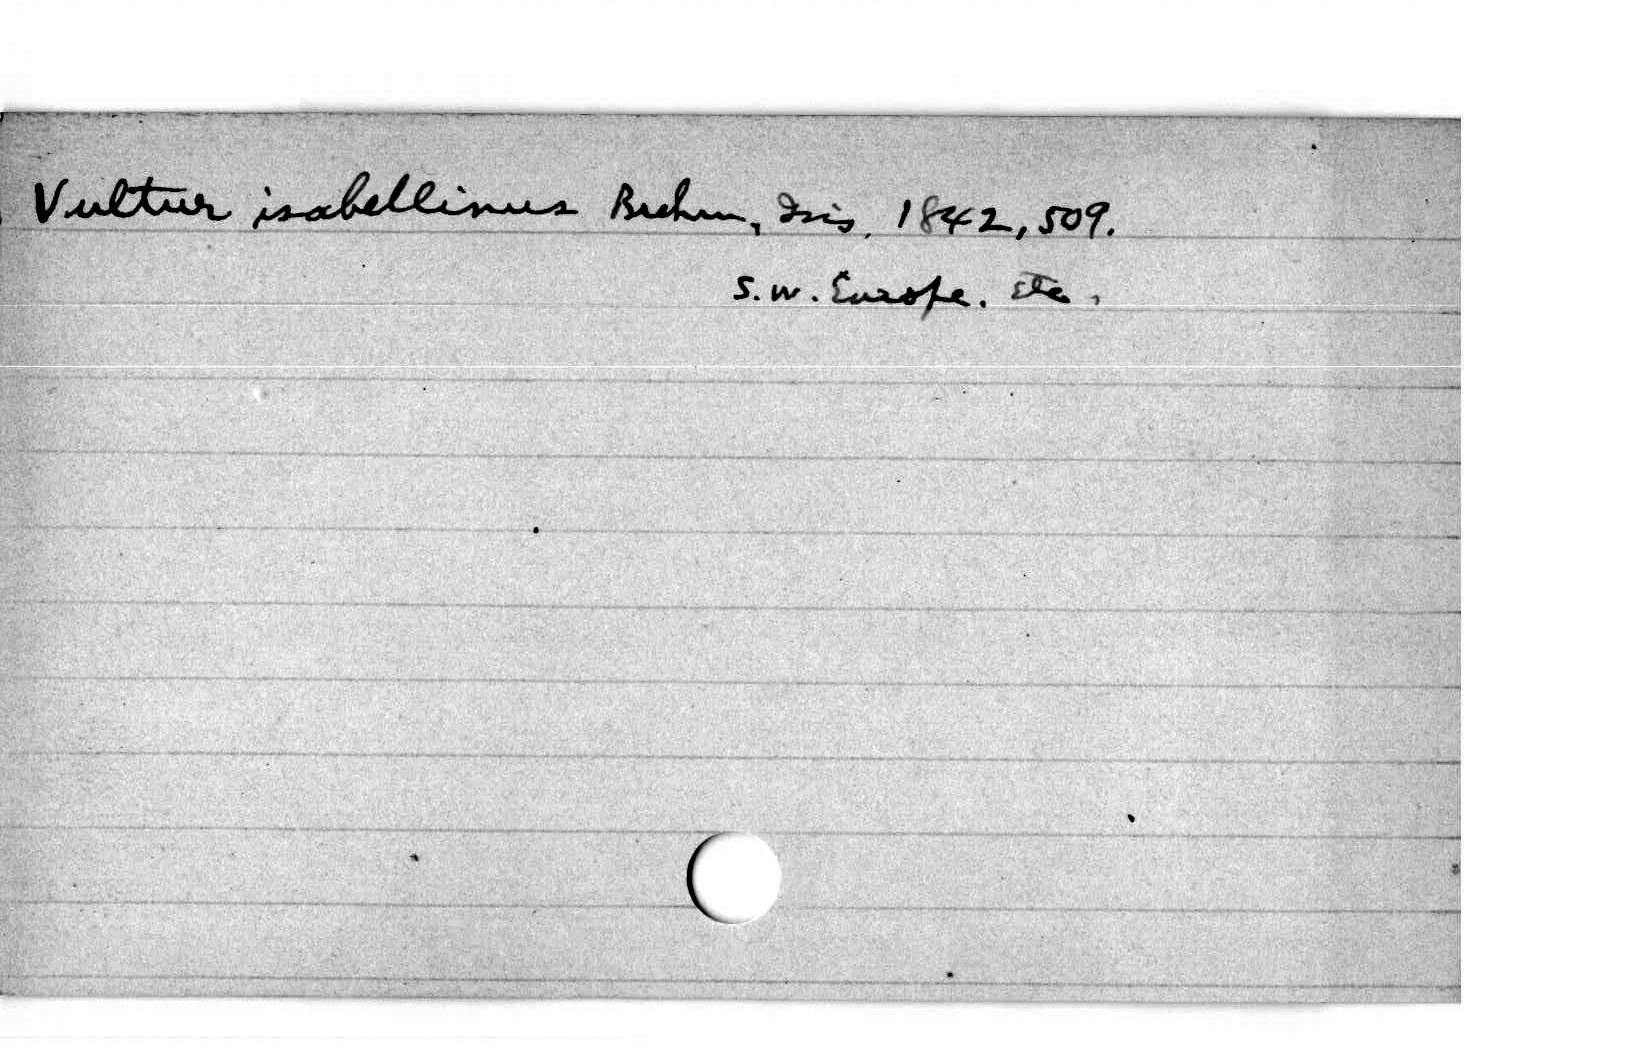 Vultur isabellinus Brehm, Isis, 1842, 509.
S.W. Europe. etc.